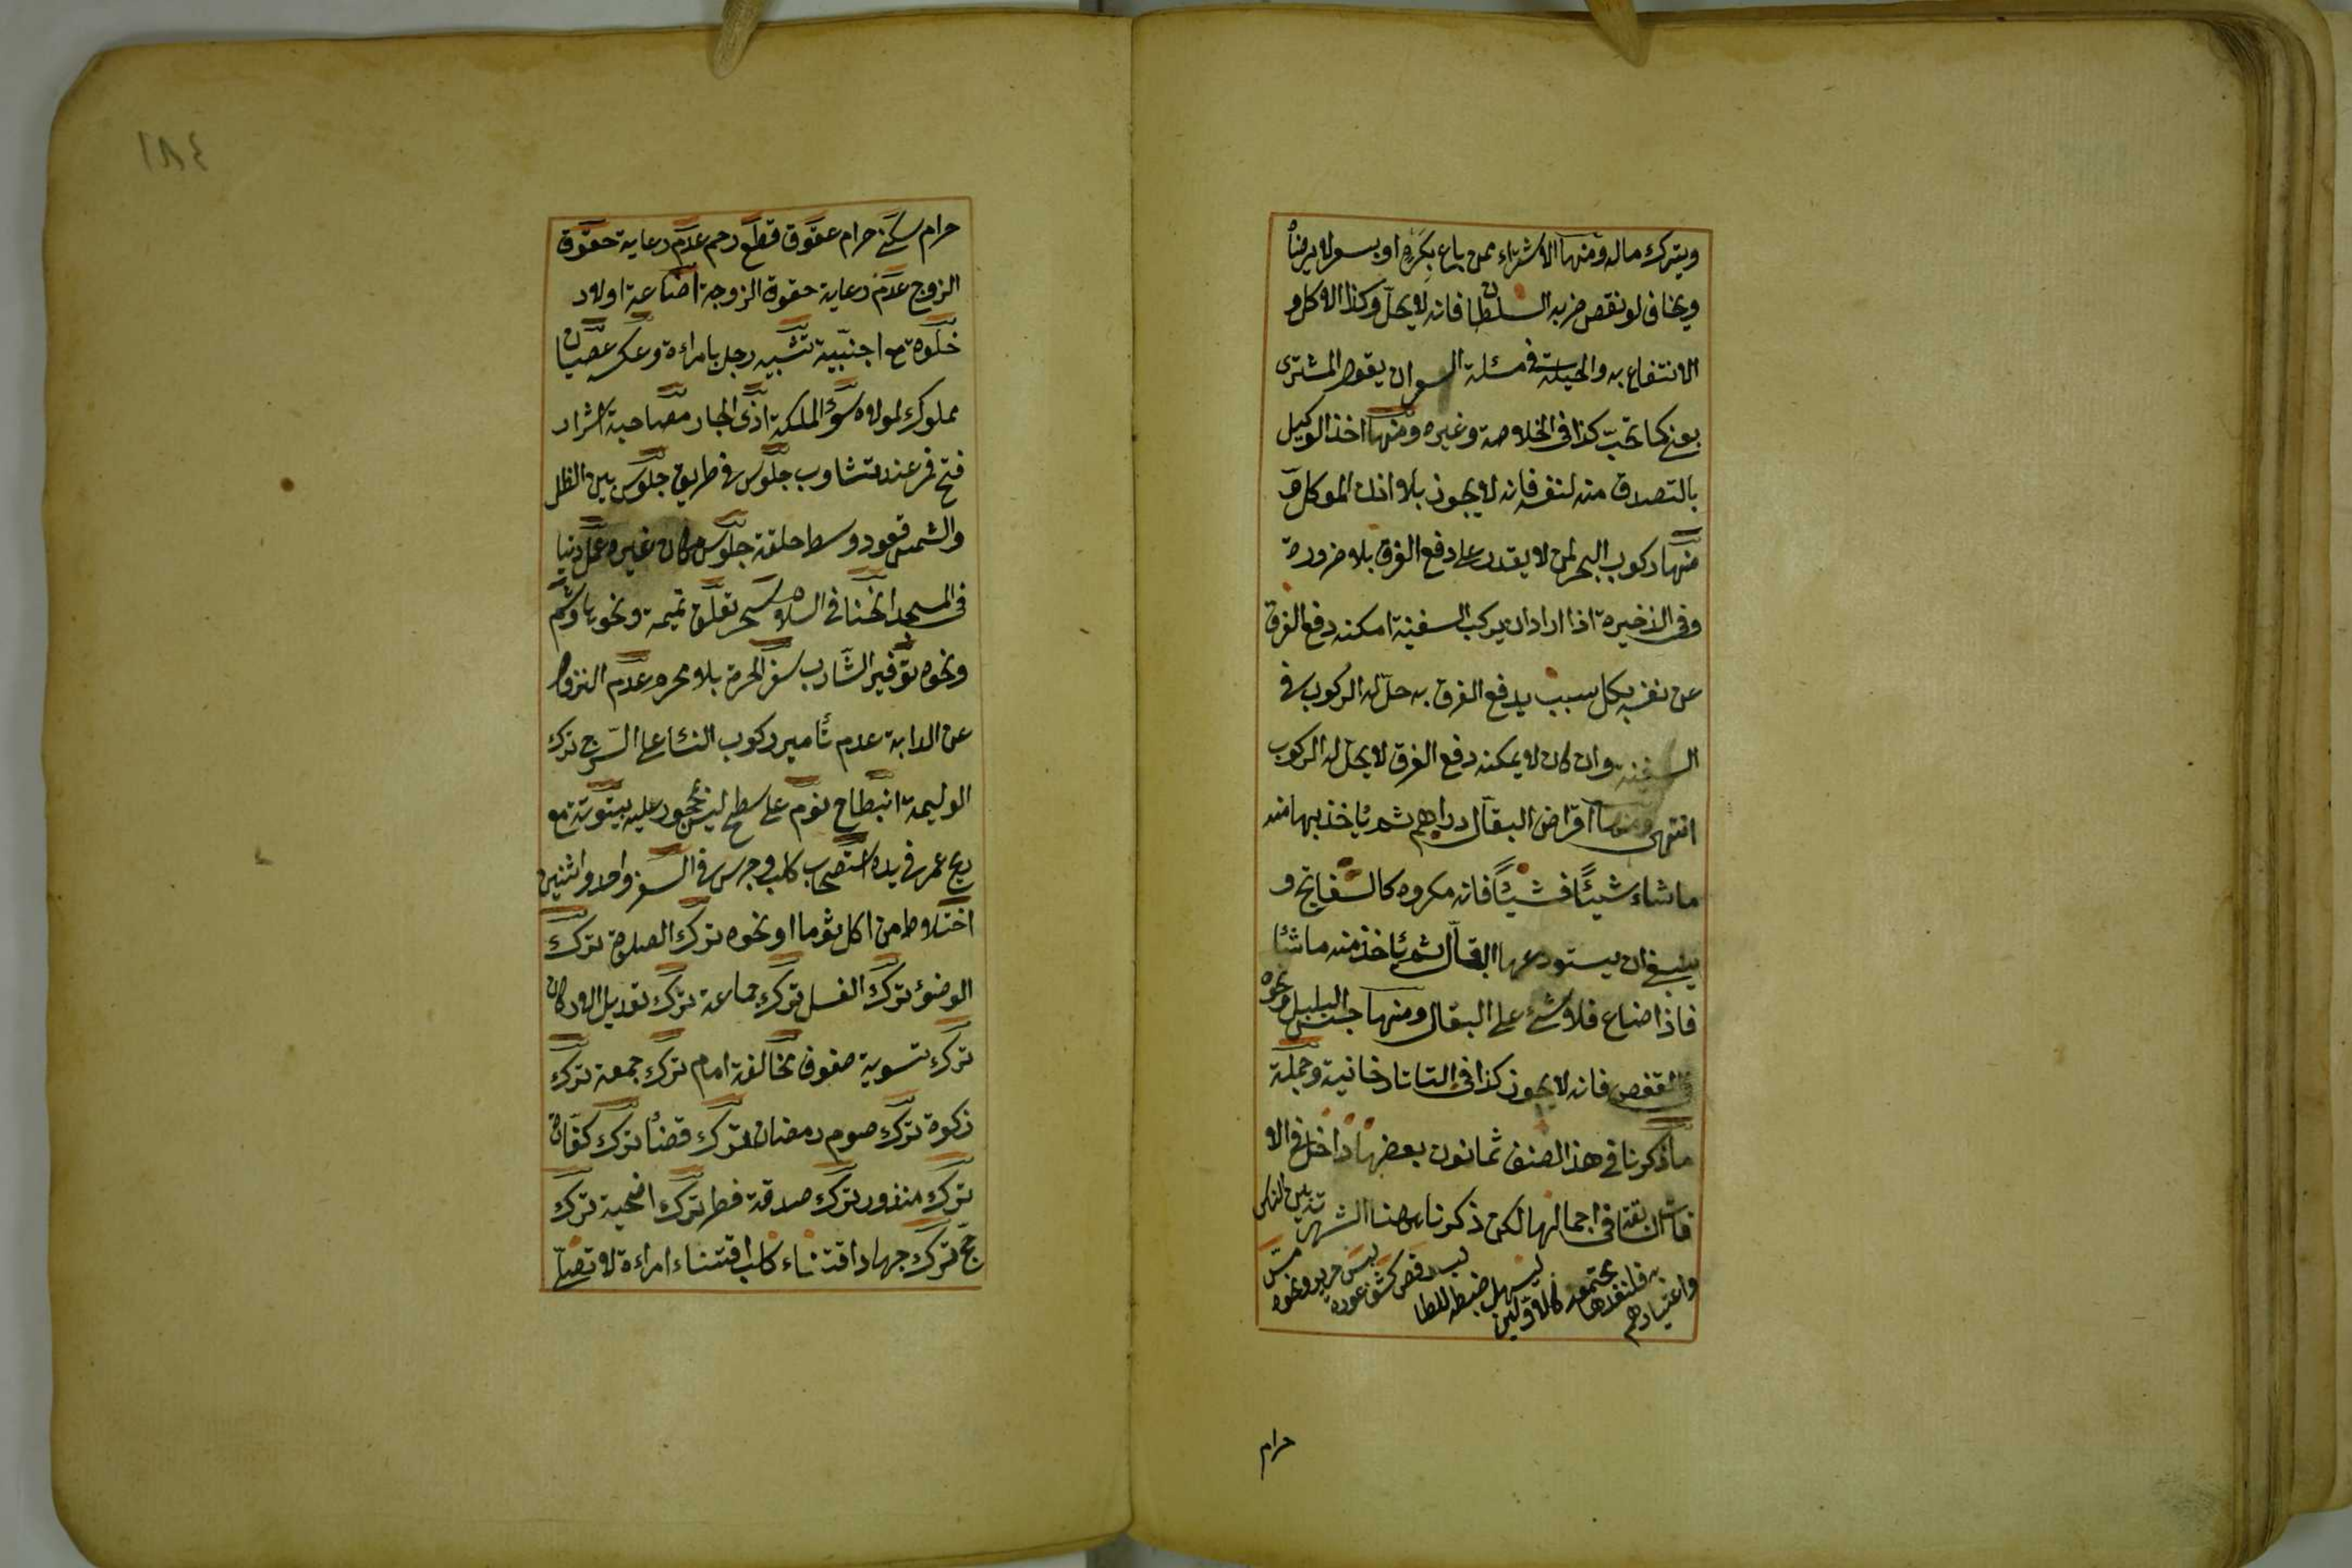 ويترك ماله ومنها الاشتراء ممن باع بكره او بسعر لا يرضاه
ويخاف لو نقص ضربه السلطان فانه لا يحل وكذا الاكل و
الانتفاع به والحيلة في مسئلة السوان يقول المشترى
بعنى كما تحب كذا فى الخلاصة وغيره ومنها اخذ الوكيل
بالتصدق منه لنفسه فانه لا يجوز بلا اذن الموكل و
منها ركوب البحر لمن لا يقدر على دفع الغرق بلا ضرورة
وفى الذخيرة اذا اراد ان يركب السفينة امكنه دفع الغرق
عن نفسه بكل سبب يدفع الغرق به حل له الركوب فى
السفينة وان كان لا يمكنه دفع الغرق لا يحل له الركوب
انتهى ومنها اقراض البقال دراهم ثم ياخذ بها منه
ما شاء شيئًا فشيئًا فانه مكروه كالسفاتج و
ينبغى ان يستودعها البقال ثم ياخذ منه ما شا
فاذا ضاع فلا شئ على البقال ومنها حبس البلبل ونحوه
فى القفص فانه لا يجوز كذا فى التاتارخانية وجملة
ما ذكرنا فى هذا الصنف ثمانون بعضها داخل فى الا
فات السابقة فى اجمالها لكن ذكرنا ههنا لشهرته بين الناس
واعتيادهم به فلنعدها مجتمعة كالاولين ليسهل ضبطه للطا لب رقص كشف عورة لبس حرير ونحوه مس
حرام
١٨٤
حرام سكنى حرام عقوق قطع رحم عدم رعاية حقوق
الزوج عدم رعاية حقوق الزوجة اضاعة اولاد
خلوة مع اجنبية تشبيه رجل بامراءة وعكسه عصيان
مملوك لمولاه سوء الملكة اذى الجار مصاحبة اشرار
فتح فم عند تثاوب جلوس فى طريق جلوس بين الظل
والشمس قعود وسط حلقة جلوس مكان غيره عمل دنيا
فى المسجد انحناء فى السلام سحر تعلق تميمة ونحوها وشم
ونحوه توفير الشارب سفر الحرة بلا محرم عدم النزول
عن الدابة عدم تأمير ركوب النساء على السرج ترك
الوليمة انبطاح نوم على سطح ليس بمحجور عليه بيتوتة مع
ريح غمر فى يده استصحاب كلب وجرس فى السفر واحد واثنين
اختلاط من اكل ثوما او نحوه ترك الصلاة ترك
الوضوء ترك الغسل ترك جماعة ترك تعديل الاركان
ترك تسوية صفوف مخالفة امام ترك جمعة ترك
زكوة ترك صوم رمضان ترك قضاء ترك كفارة
ترك منذور ترك صدقة فطر ترك اضحية ترك
حج ترك جهاد اقتناء كلب اقتناء امراءة لا تصلى